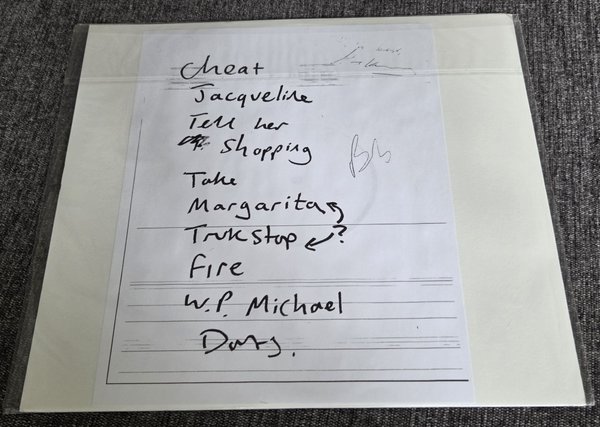 cheat
Jacqueline
Tell her
Shopping
Take
Margarita
Trukstop ?
Fire
W.P. Michael
Darts.